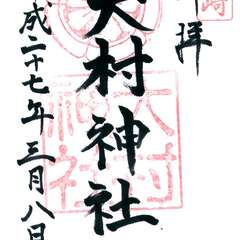 奉拝
崎
大村神社
大村神社
平成二十七年三月八日